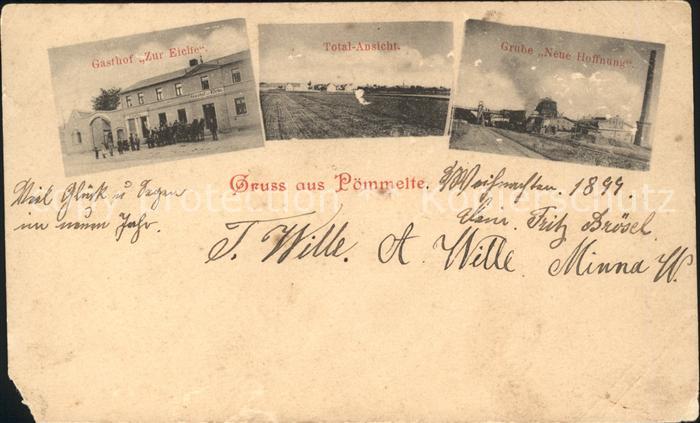 Gasthof „Zur Eiche“.
Total-Ansicht.
Grube „Neue Hoffnung“.
Gruss aus Pömmelte.
Weihnachten. 1899
Viel Glück u Segen
im neuen Jahr.
Fritz Brösel.
T. Wille. A. Wille. Minna W.
Copyright Protection ** Kopierschutz